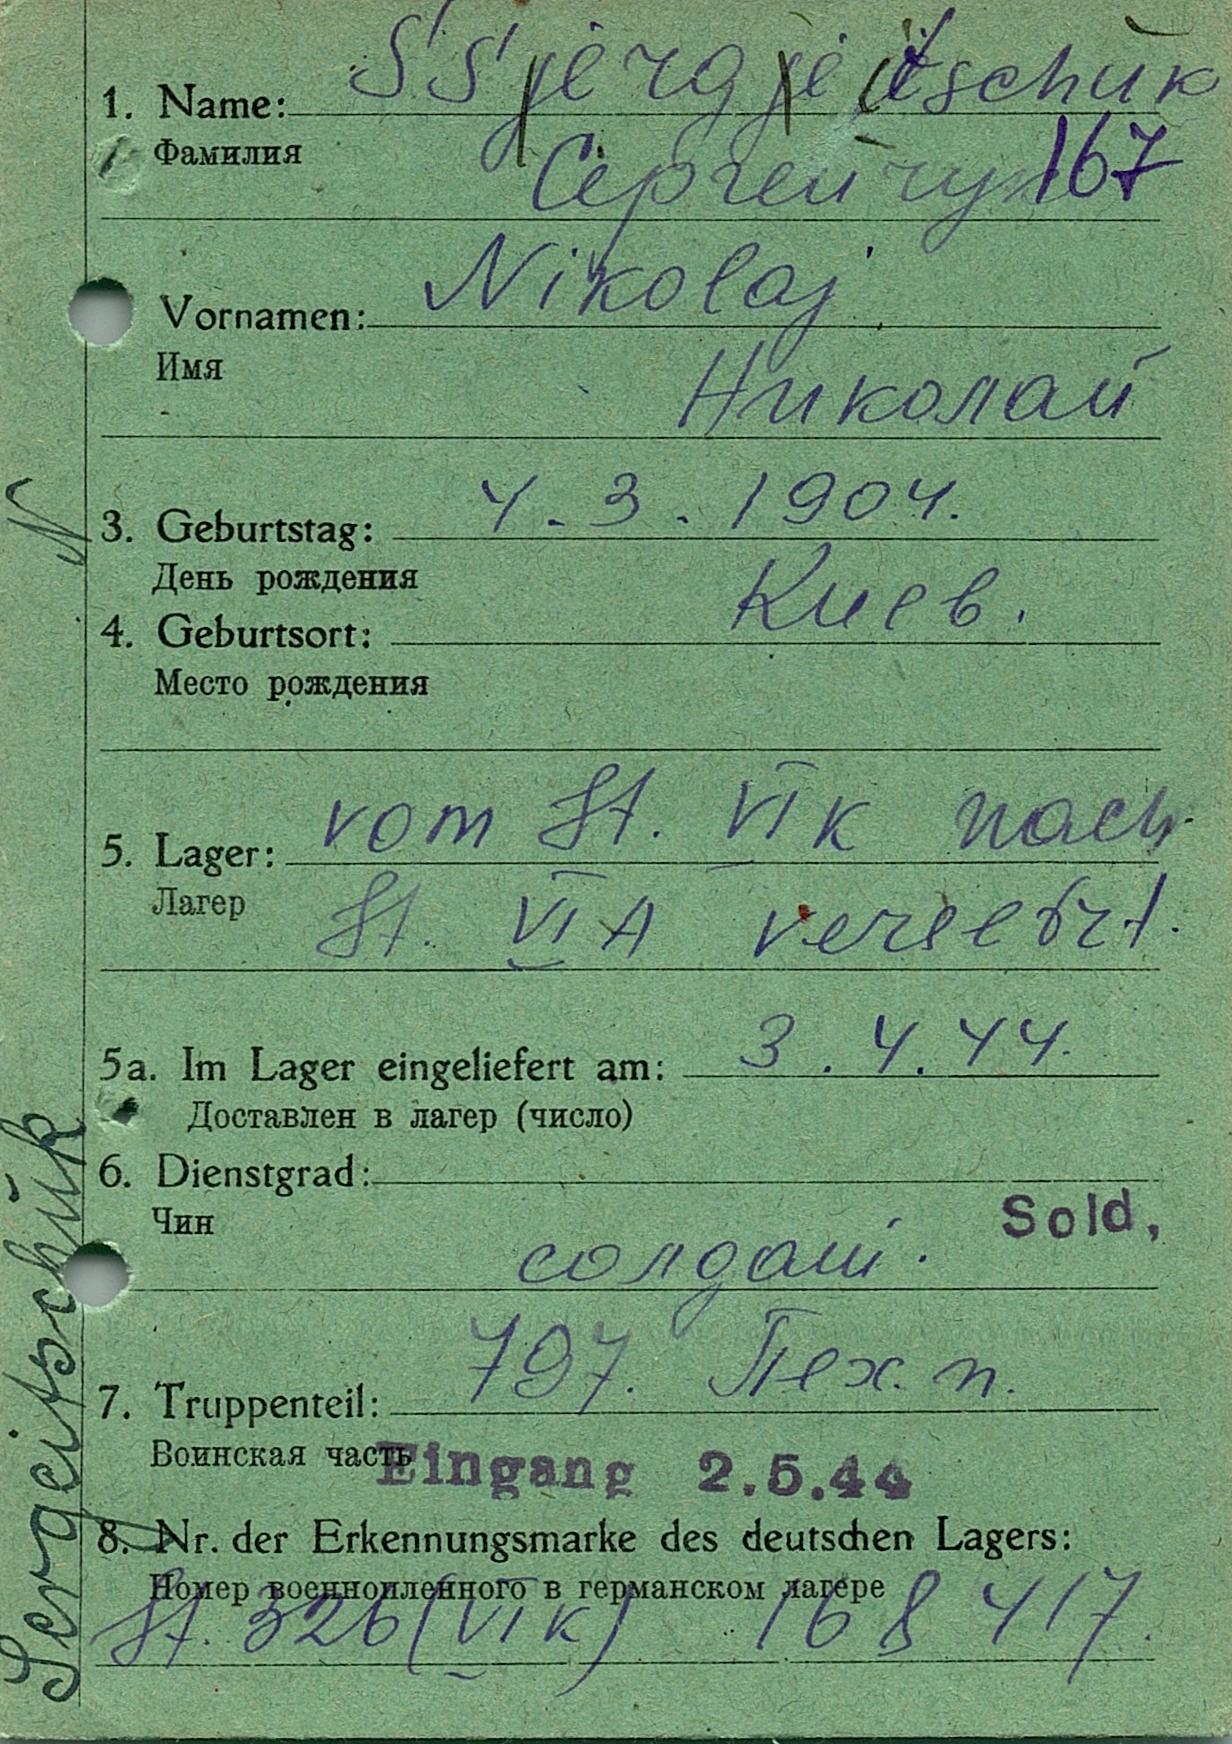 1. Name: SSjergjeitschuk
Фамилия Сергейчук 167
Vornamen: Nikolaj
Имя Николай
3. Geburtstag: 4.3.1904.
День рождения
4. Geburtsort: Киев.
Место рождения
5. Lager: vom St. VI K nach
Лагер St. VI A versetzt.
5a. Im Lager eingeliefert am: 3.4.44.
Доставлен в лагер (число)
6. Dienstgrad:
Чин солдат. Sold,
7. Truppenteil: 797. Пех. п.
Воинская часть Eingang 2.5.44
8. Nr. der Erkennungsmarke des deutschen Lagers:
Номер военнопленного в германском лагере
St. 326 (VI K) 168417.
N
Sergeitschuk